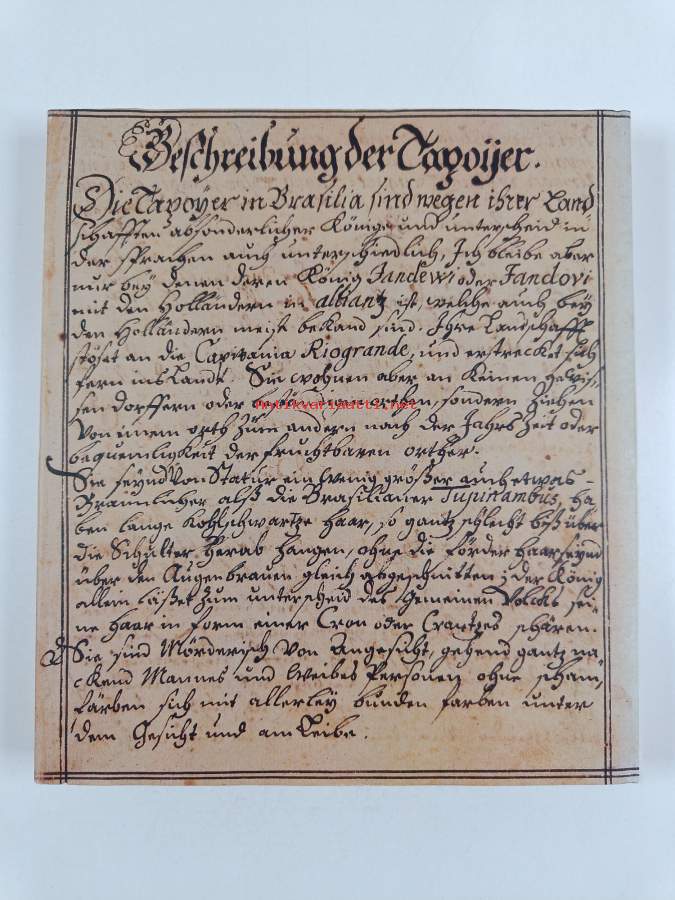 Beschreibung der Tapoÿer.
Die Tapoÿer in Brasilia sind wegen ihrer Land
schafften absonderlicher Könige und unterscheid in
der sprachen auch unterschiedlich, Ich bleibe aber
nur bey denen deren König Jandewi oder Jandovi
mit den Holländern in alliantz ist, welche auch bey
den Holländern meist bekand sind. Ihre Landschafft
stöset an die Capitania Riogrande, und erstrecket sich
fern ins Land. Sie wohnen aber an keinen gewis,
sen dorffern oder orthen, sondern ziehen
antikvariaatti.net
Von einem orth zum andern nach der Jahrs Zeit oder
bequemligkeit der fruchtbaren orther.
Sie seynd Von Statur ein wenig größer auch etwas
Braunlicher alß die Brasilianer Tupinambus, ha
ben lange Kohlschwartze haar, so gantz schlecht biß über
die Schulter herab hangen, ohne die förder haar seynd
über den Augenbrauen gleich abgeschnitten; der König
allein läßet zum unterscheid des Gemeinen Volcks sei,
ne haar in form einer Cron oder Crantzes schären.
Sie sind Mörderisch Von Angesicht, gehend gantz na
ckend Mannes und Weibes Personen ohne scham,
färben sich mit allerley bunden farben unter
dem Gesicht und am Leibe.